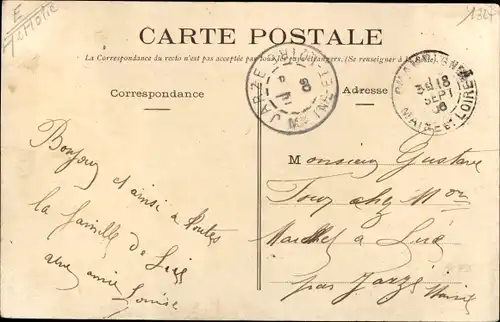 E
1327
CARTE POSTALE
La Correspondance du recto n'est pas acceptée par tous les pays étrangers. (Se renseigner à la Poste).
Correspondance
Adresse
JARZÉ
MAINE-ET-LOIRE
18
SEPT
MAINE ET LOIRE
Bonjour et ainsi à toutes
la famille de
une amie
Louise
Monsieur Gustave
Touy chez Mon
à Lué
par Jarzé